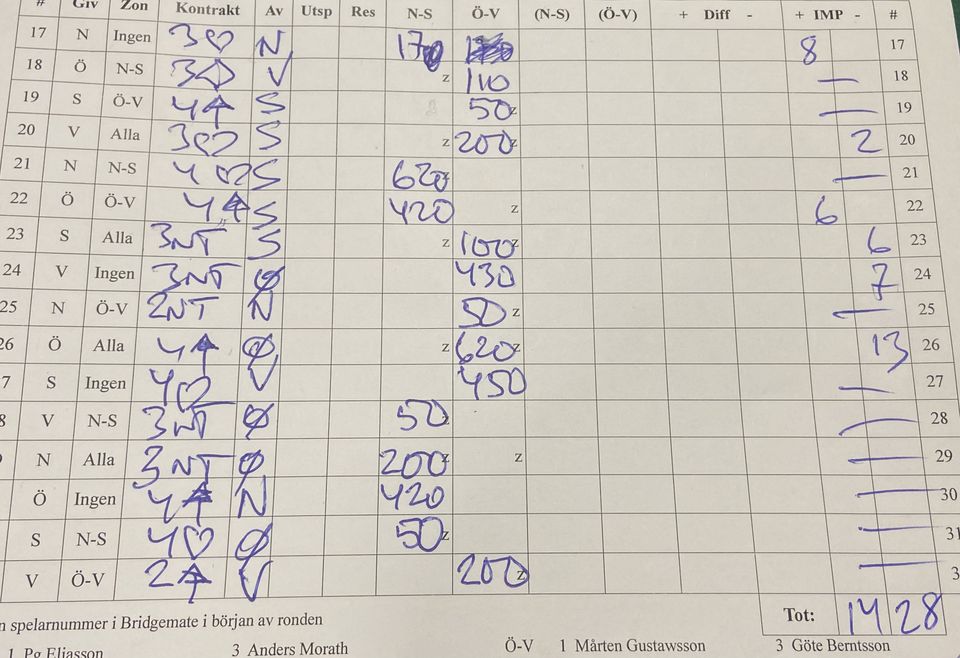 # Giv Zon Kontrakt Av Utsp Res N-S Ö-V (N-S) (Ö-V) + Diff - + IMP - #
17 N Ingen 3♡ N 170 8 17
18 Ö N-S V z 110 — 18
19 S Ö-V 4♠ S 50 z — 19
20 V Alla 3♡ S z 200 z 2 20
21 N N-S 4♡ S 620 z — 21
22 Ö Ö-V 4♠ S 420 z 6 22
23 S Alla 3NT S z 100 z 6 23
24 V Ingen 3NT Ø 430 7 24
25 N Ö-V 2NT N 50 z — 25
26 Ö Alla 4♠ Ø z 620 z 13 26
7 S Ingen 4♡ V 450 — 27
8 V N-S 3NT Ø 50 z — 28
N Alla 3NT Ø 200 z z — 29
Ö Ingen 4♠ N 420 — 30
S N-S 4♡ Ø 50 z — 31
V Ö-V 2♠ V 200 z — 3
Tot: 14 28
n spelarnummer i Bridgemate i början av ronden
1 Pg Eliasson 3 Anders Morath Ö-V 1 Mårten Gustawsson 3 Göte Berntsson